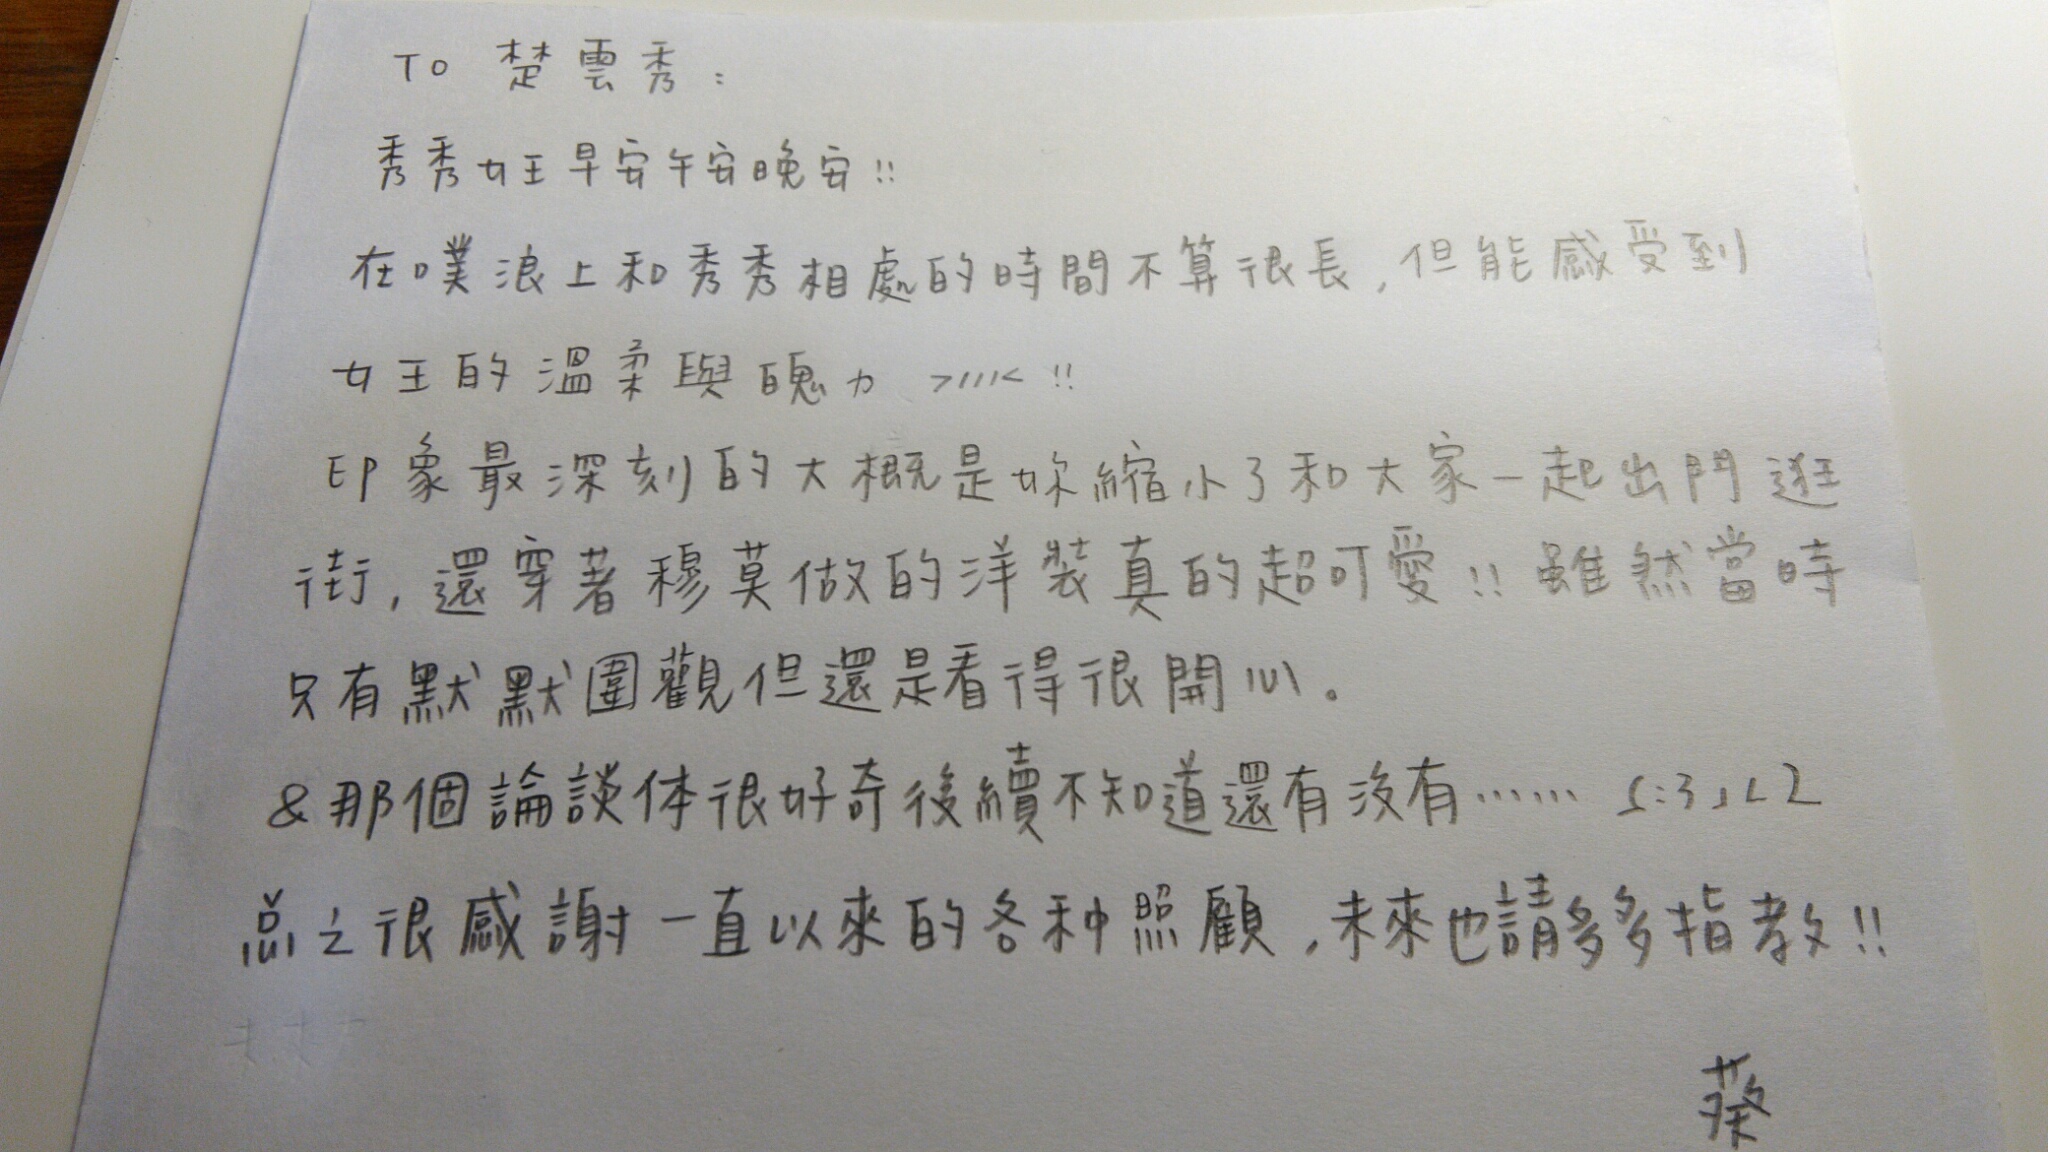 TO 楚雲秀:
秀秀女王早安午安晚安!!
在噗浪上和秀秀相處的時間不算很長,但能感受到
女王的溫柔與魄力 >////< !!
印象最深刻的大概是妳縮小了和大家一起出門逛
街,還穿著穆莫做的洋裝真的超可愛!!雖然當時
只有默默圍觀但還是看得很開心。
&那個論談体很好奇後續不知道還有沒有…… 「:3」∠
总之很感謝一直以來的各种照顧,未來也請多多指教!!
蔡